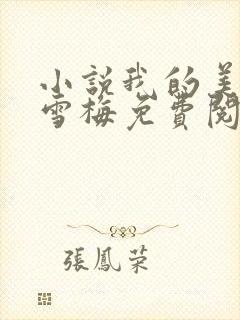 小說我的美
雪梅免費閱
張鳳荣